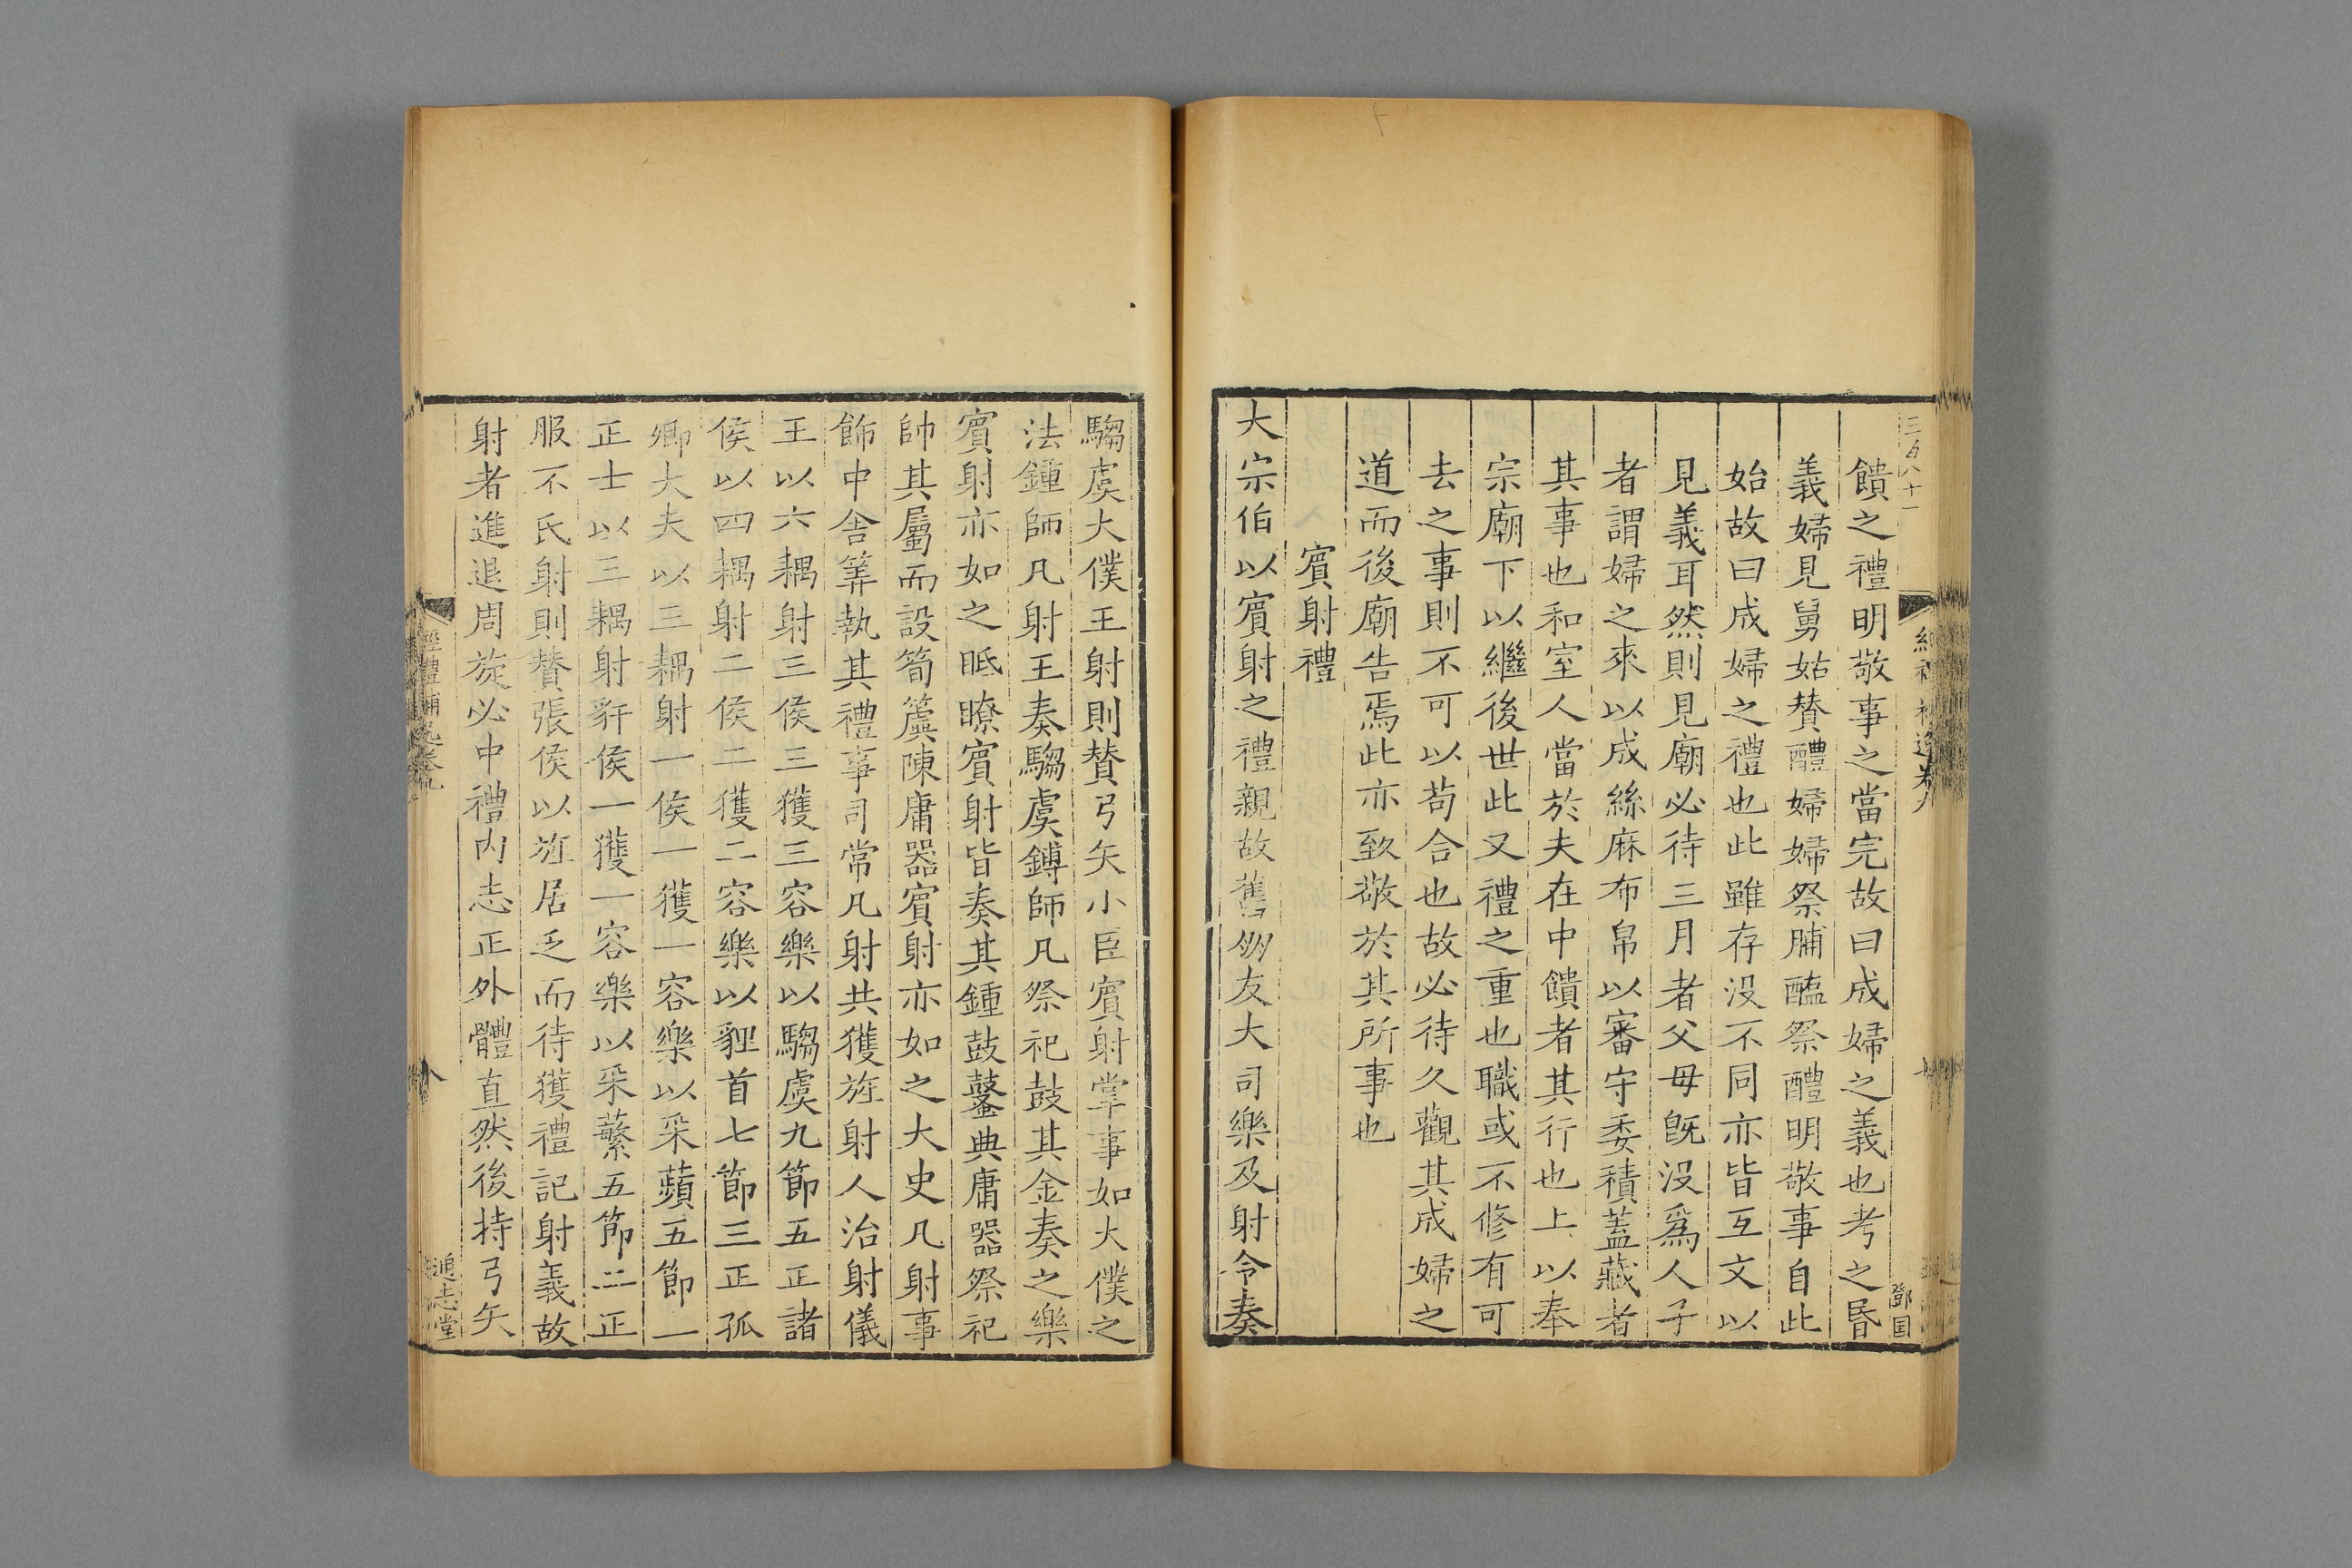 三百八十一
饋之禮明敬事之當完故曰成婦之義也考之昏
義婦見舅姑贊醴婦婦祭脯醢祭醴明敬事自此
始故曰成婦之禮也此雖存没不同亦皆互文以
見義耳然則見廟必待三月者父母旣没爲人子
者謂婦之來以成絲麻布帛以審守委積蓋藏者
其事也和室人當於夫在中饋者其行也上以奉
宗廟下以繼後世此又禮之重也職或不修有可
去之事則不可以苟合也故必待久觀其成婦之
道而後廟告焉此亦致敬於其所事也
賓射禮
大宗伯以賓射之禮親故舊朋友大司樂及射令奏
鄧国
騶虞大僕王射則贊弓矢小臣賓射掌事如大僕之
法鍾師凡射王奏騶虞鎛師凡祭祀鼓其金奏之樂
賓射亦如之眡瞭賓射皆奏其鍾鼓鼜典庸器祭祀
帥其屬而設筍簴陳庸器賓射亦如之大史凡射事
飾中舍筭執其禮事司常凡射共獲旌射人治射儀
王以六耦射三侯三獲三容樂以騶虞九節五正諸
侯以四耦射二侯二獲二容樂以貍首七節三正孤
卿大夫以三耦射一侯一獲一容樂以采蘋五節二
正士以三耦射豻侯一獲一容樂以采蘩五節二正
服不氏射則贊張侯以旌居乏而待獲禮記射義故
射者進退周旋必中禮内志正外體直然後持弓矢
經禮補逸卷九
八
通志堂